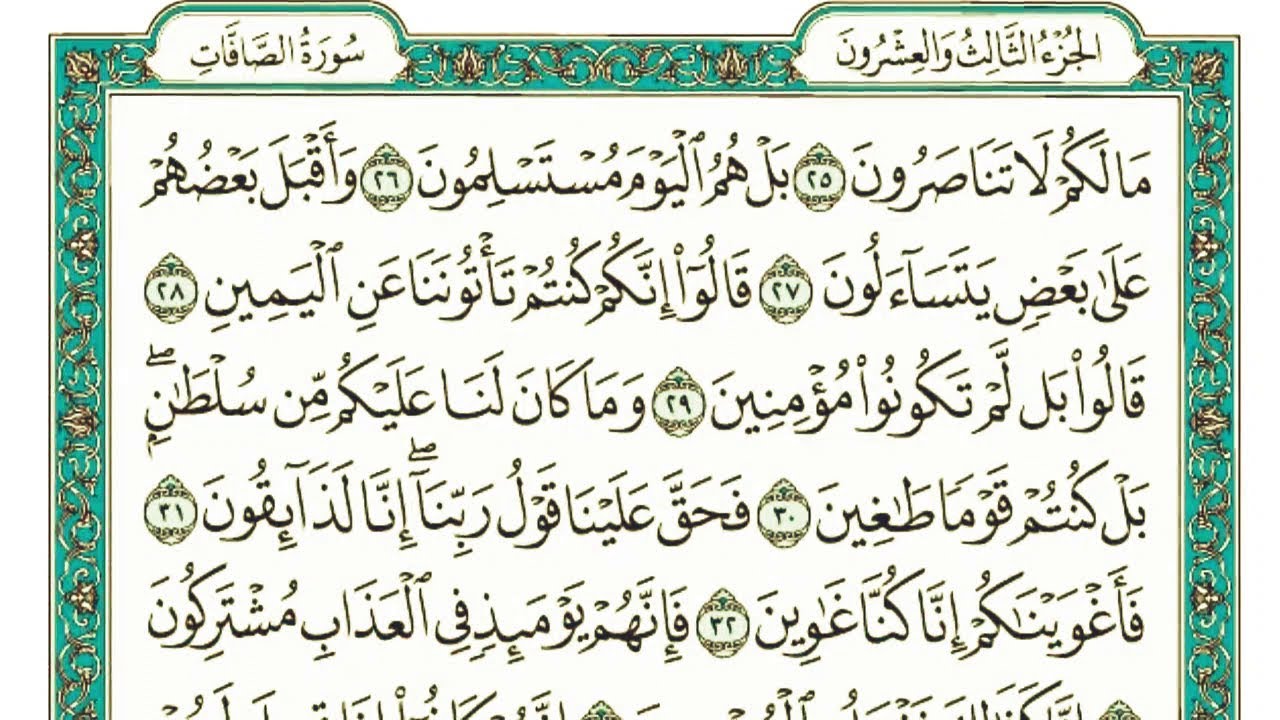 الجُزْءُ الثَّالِثُ وَالعِشْرُونَ
سُورَةُ الصَّافَّاتِ
مَا لَكُمْ لَا تَنَاصَرُونَ ٢٥ بَلْ هُمُ ٱلْيَوْمَ مُسْتَسْلِمُونَ ٢٦ وَأَقْبَلَ بَعْضُهُمْ
عَلَىٰ بَعْضٍ يَتَسَآءَلُونَ ٢٧ قَالُوٓا۟ إِنَّكُمْ كُنتُمْ تَأْتُونَنَا عَنِ ٱلْيَمِينِ ٢٨
قَالُوا۟ بَل لَّمْ تَكُونُوا۟ مُؤْمِنِينَ ٢٩ وَمَا كَانَ لَنَا عَلَيْكُم مِّن سُلْطَٰنٍۭ ۖ
بَلْ كُنتُمْ قَوْمًا طَٰغِينَ ٣٠ فَحَقَّ عَلَيْنَا قَوْلُ رَبِّنَآ ۖ إِنَّا لَذَآئِقُونَ ٣١
فَأَغْوَيْنَٰكُمْ إِنَّا كُنَّا غَٰوِينَ ٣٢ فَإِنَّهُمْ يَوْمَئِذٍ فِى ٱلْعَذَابِ مُشْتَرِكُونَ